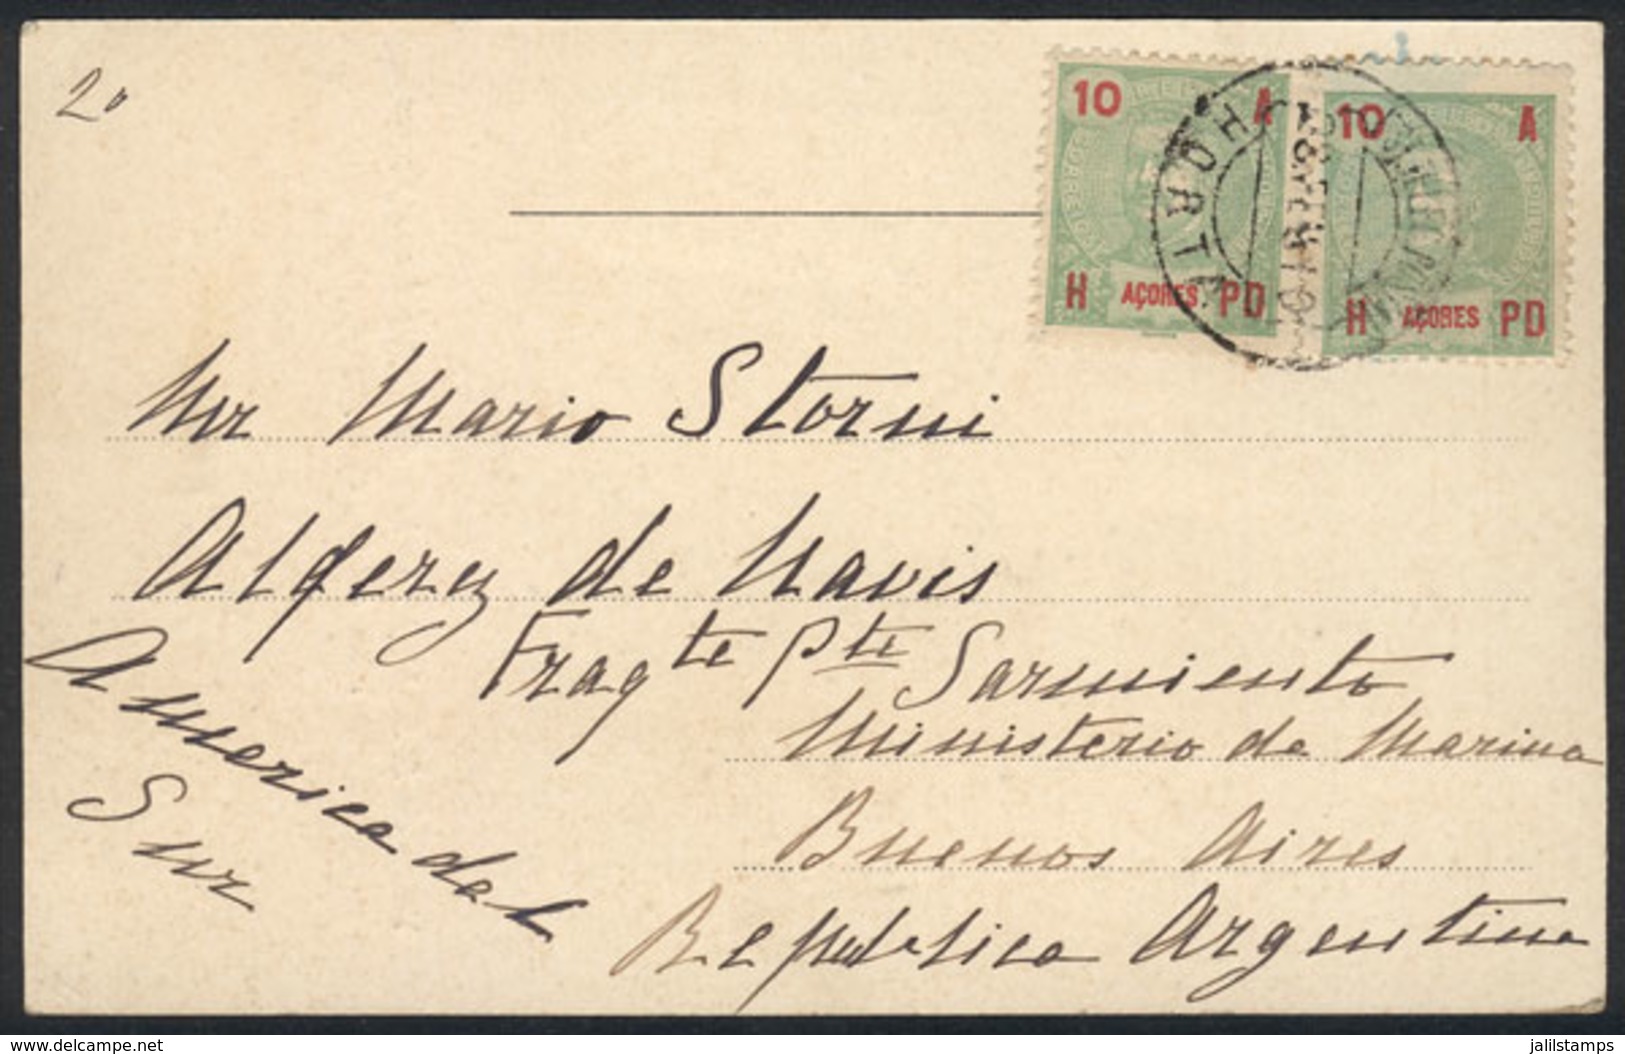 20
10 A
H AÇORES PD
10 A
H AÇORES PD
HORTA
Mr Mario Storni
Alferez de Navis
Fragte Pte Sarmiento
Ministerio de Marina
Buenos Aires
Republica Argentina
America del
Sur
www.delcampe.net
jalilstamps